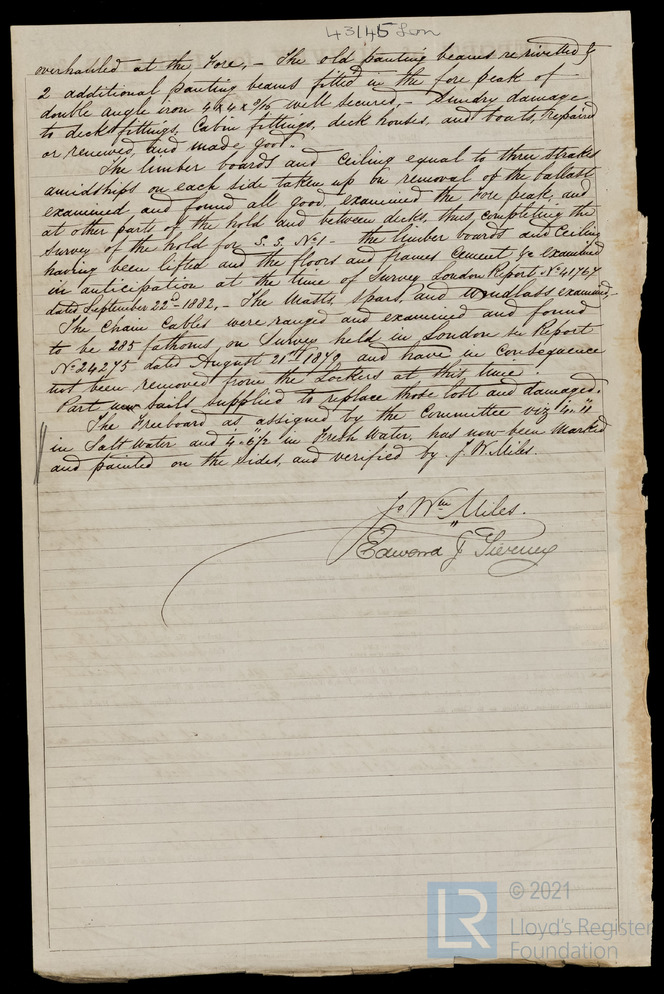 43145 Lon
overhauled at the Fore, – The old panting beams rerivetted &
2 additional panting beams fitted in the fore peak of
double angle iron 4x4x9/16 well secured, – Sundry damage
to decks fittings, Cabin fittings, deck houses, and boats, repaired
or renewed, and made good.
The limber boards and Ceiling equal to three strakes
amidships on each side taken up on removal of the ballast
examined and found all good, examined the Fore peak, and
at other parts of the hold and between decks, thus completing the
survey of the hold for S.S. No 1 – the limber boards and Ceiling
having been lifted and the floors and frames cement &c examined
in anticipation at the time of Survey London Report No 41767
dated September 22d 1882, – The Masts, Spars, and Windlass examined –
The Chain Cables were ranged and examined and found
to be 285 fathoms, on Survey held in London see Report
No 24275 dated August 21st 1879, and have in consequence
not been removed from the Lockers at this time.
Part new Sails supplied to replace those lost and damaged.
The Freeboard as assigned by the Committee viz 4..11
in Salt Water and 4..6½ in Fresh Water, has now been Marked
and painted on the sides, and verified by J. W. Miles.
Jo Wm Miles.
Edward J Tierney
LR
© 2021
Lloyd's Register
Foundation